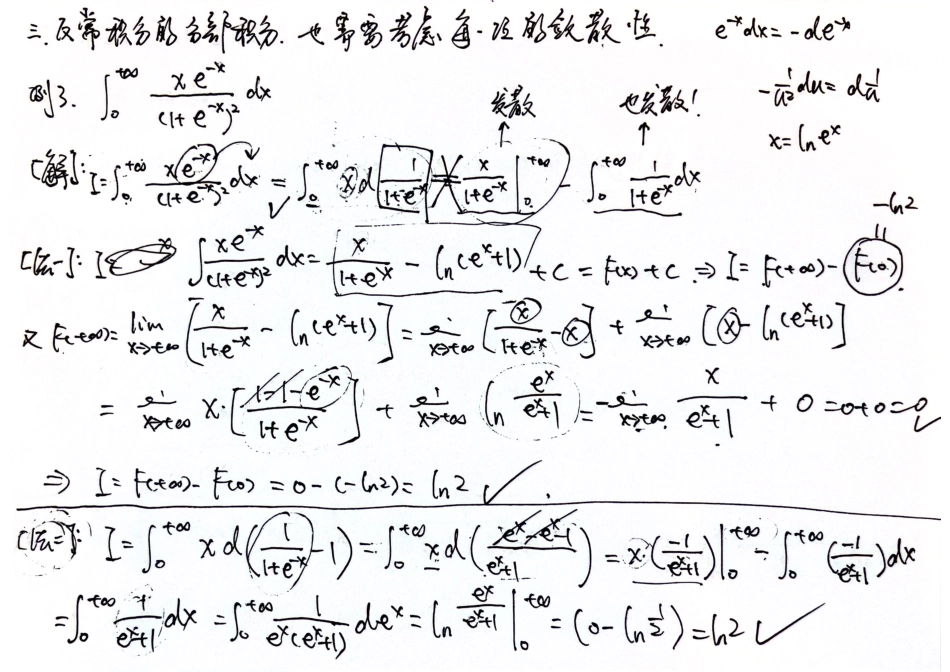 三.反常积分的分部积分.也需要考虑每一项的敛散性. e^{-x}dx=-de^{-x}
例3. ∫_0^{+∞} \frac{xe^{-x}}{(1+e^{-x})^2}dx 发散 也发散! -\frac{1}{u^2}du=d\frac{1}{u}
x=ln e^x
[解]: I=∫_0^{+∞} \frac{xe^{-x}}{(1+e^{-x})^2}dx = ∫_0^{+∞} xd\frac{1}{1+e^{-x}} = \frac{x}{1+e^{-x}}|_0^{+∞} - ∫_0^{+∞} \frac{1}{1+e^{-x}}dx
-ln2
[法一]: ∫\frac{xe^{-x}}{(1+e^{-x})^2}dx = \frac{x}{1+e^{-x}} - ln(e^x+1) + C = F(x)+C ⇒ I=F(+∞)-F(0)
又 F(+∞)=lim_{x→+∞}[\frac{x}{1+e^{-x}} - ln(e^x+1)] = lim_{x→+∞}[\frac{x}{1+e^{-x}} - x] + lim_{x→+∞}[x-ln(e^x+1)]
= lim_{x→+∞} x·[\frac{1-1-e^{-x}}{1+e^{-x}}] + lim_{x→+∞} ln\frac{e^x}{e^x+1} = -lim_{x→+∞}\frac{x}{e^x+1} + 0 = 0+0 = 0 ✓
⇒ I=F(+∞)-F(0)=0-(-ln2)=ln2 ✓.
[法二]: I=∫_0^{+∞} xd(\frac{1}{1+e^{-x}}-1) = ∫_0^{+∞} xd(\frac{e^x-e^x-1}{e^x+1}) = x·(\frac{-1}{e^x+1})|_0^{+∞} - ∫_0^{+∞}(\frac{-1}{e^x+1})dx
=∫_0^{+∞}\frac{1}{e^x+1}dx = ∫_0^{+∞}\frac{1}{e^x(e^x+1)}de^x = ln\frac{e^x}{e^x+1}|_0^{+∞} = (0-ln\frac{1}{2}) = ln2 ✓